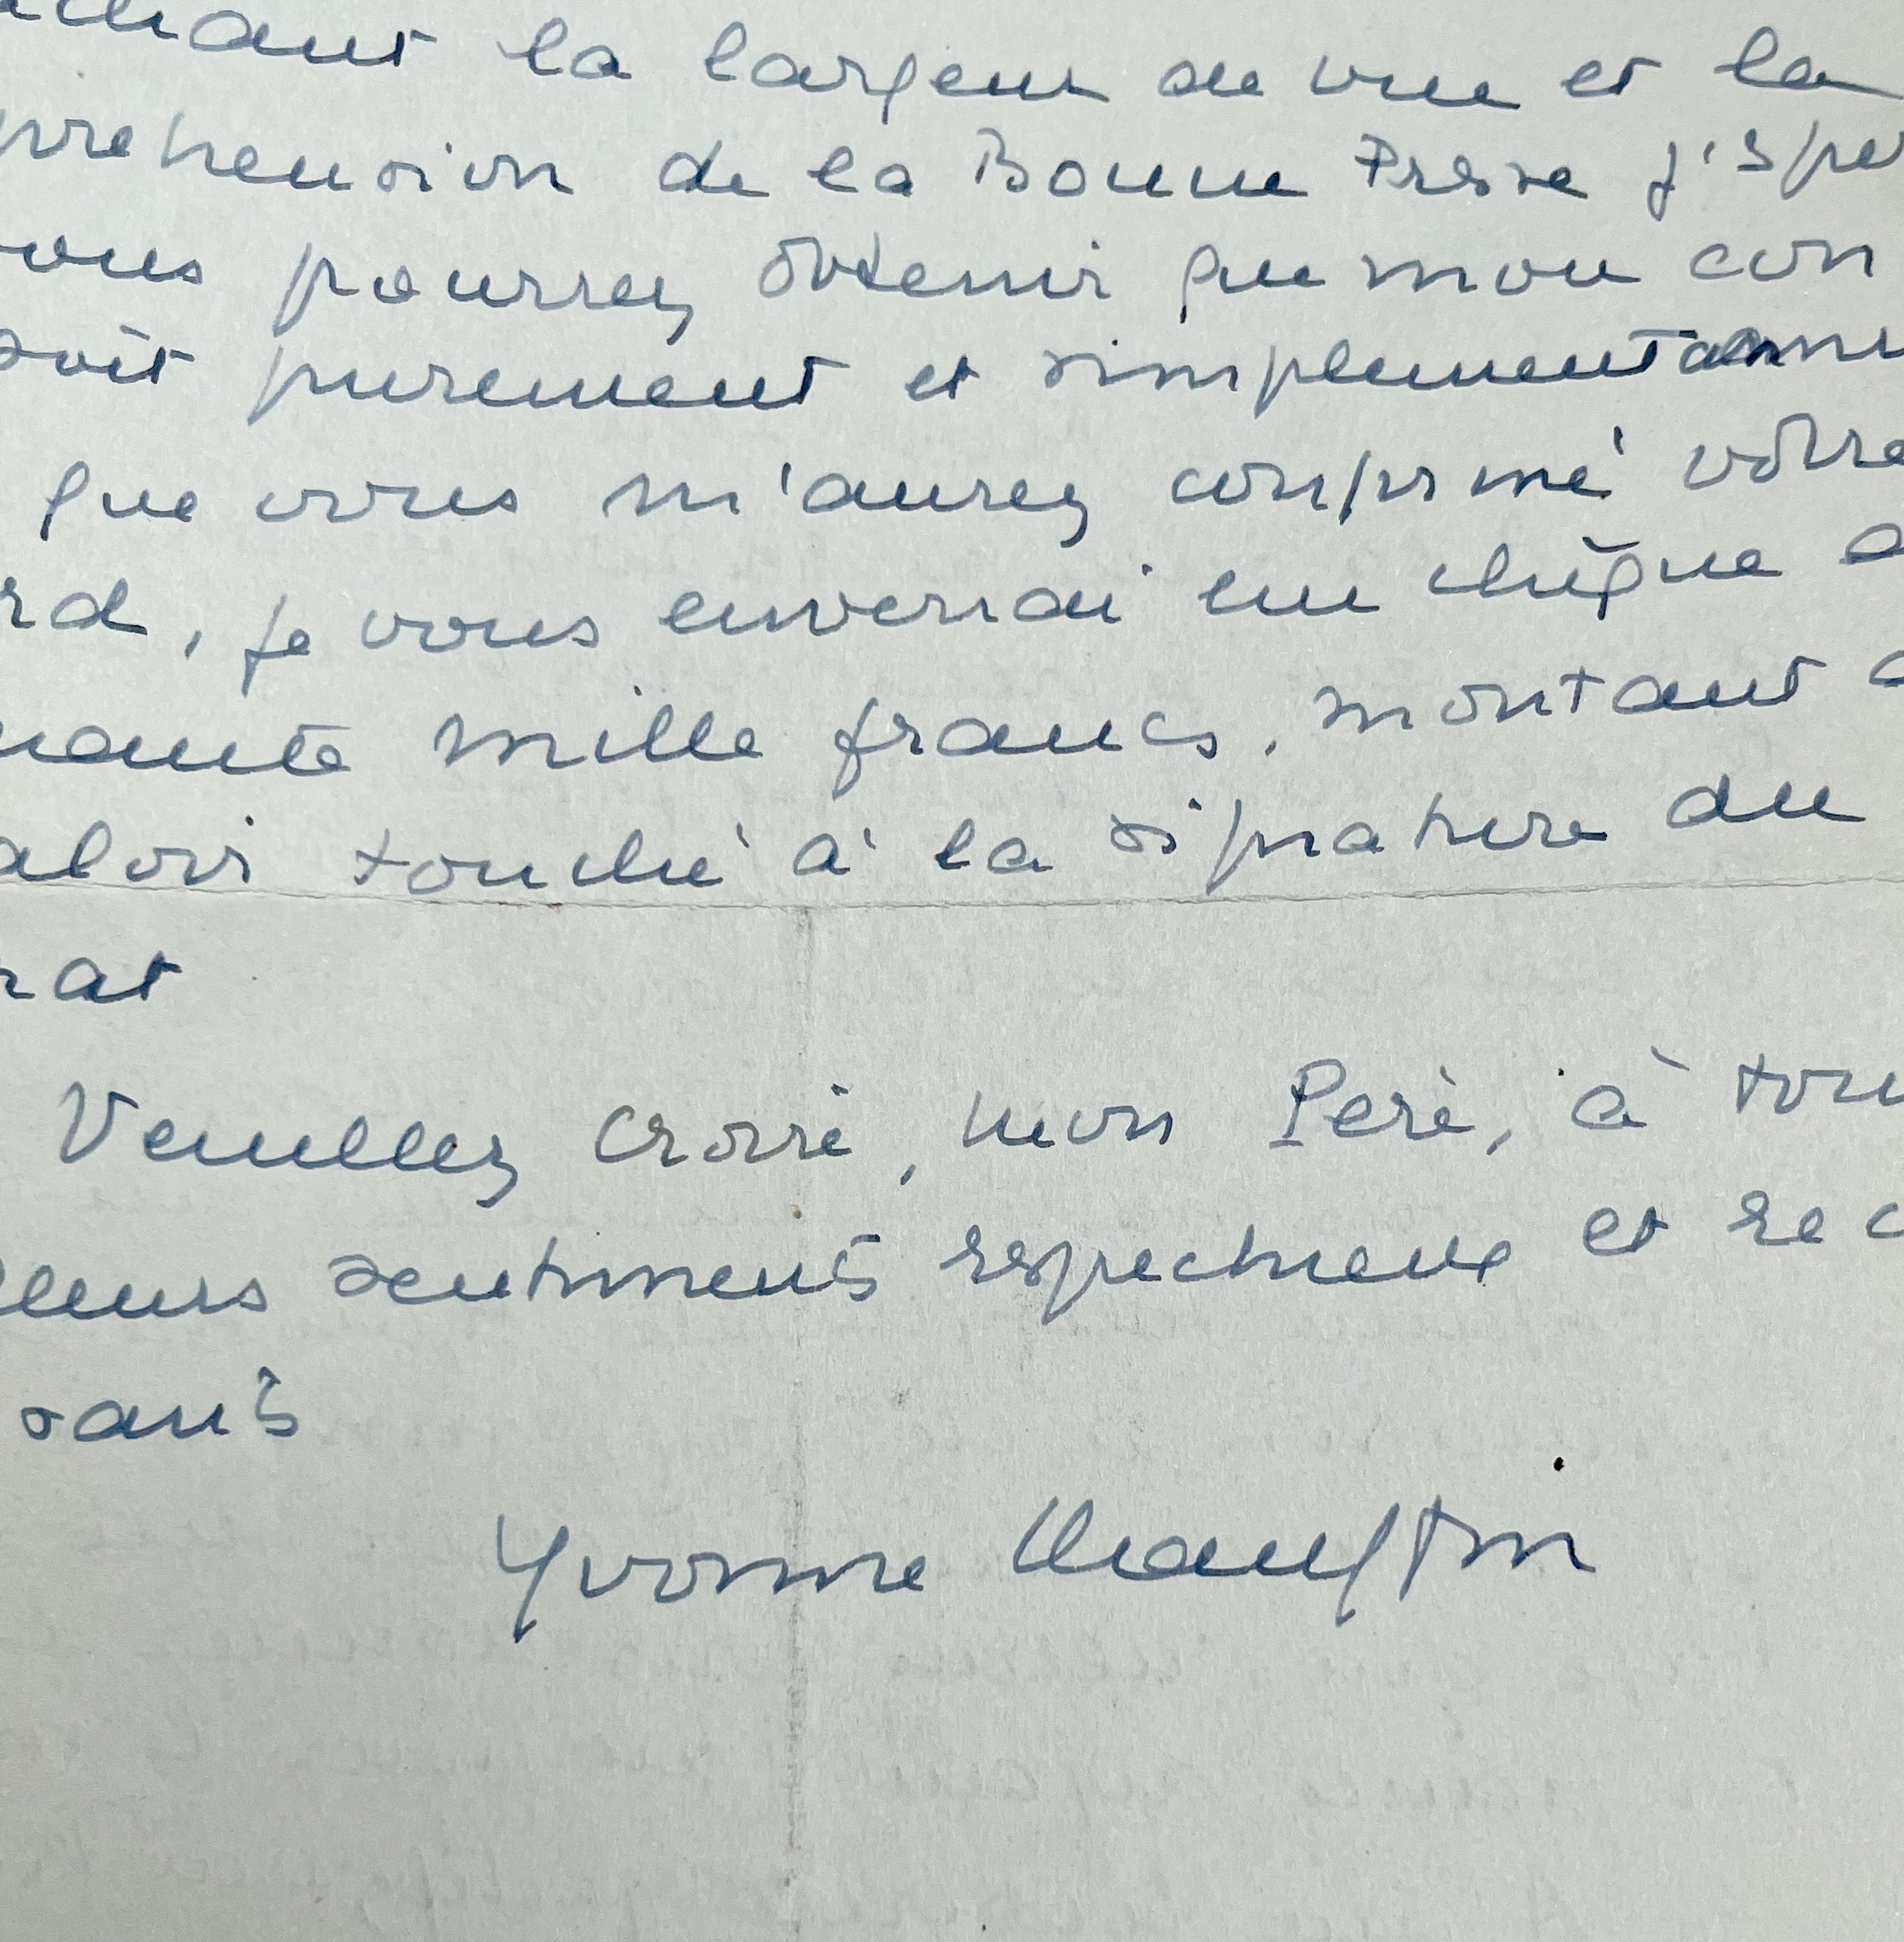 la largeur de vue et la
préhension de la Bonne Presse j'espè
vous pourrez obtenir que mon con
soit purement et simplement annu
que vous m'aurez confirmé votre
rd, je vous enverrai un chèque
uante mille francs, montant
aloir touché à la signature du
rat
Veuillez croire, mon Père, à
leurs sentiments respectueux et rec
sants
Yvonne Chauffin